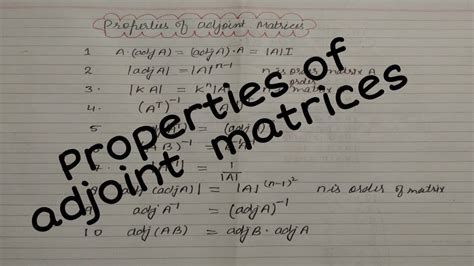 Properties of adjoint Matrices
1 A (adj A) = (adj A) . A = |A| I
2 |adj A| = |A|^{n-1} n is order matrix A
3. |KA| = K^n |A| order matrix
4. (A^T)^{-1}
5 = (adj
6 B)^{-1} =
7 = 1/|A|
(adj A)| = |A|^{(n-1)^2} n is order of matrix
9 adj A^{-1} = (adj A)^{-1}
10 adj (AB) = adj B . adj A
Properties of
adjoint matrices